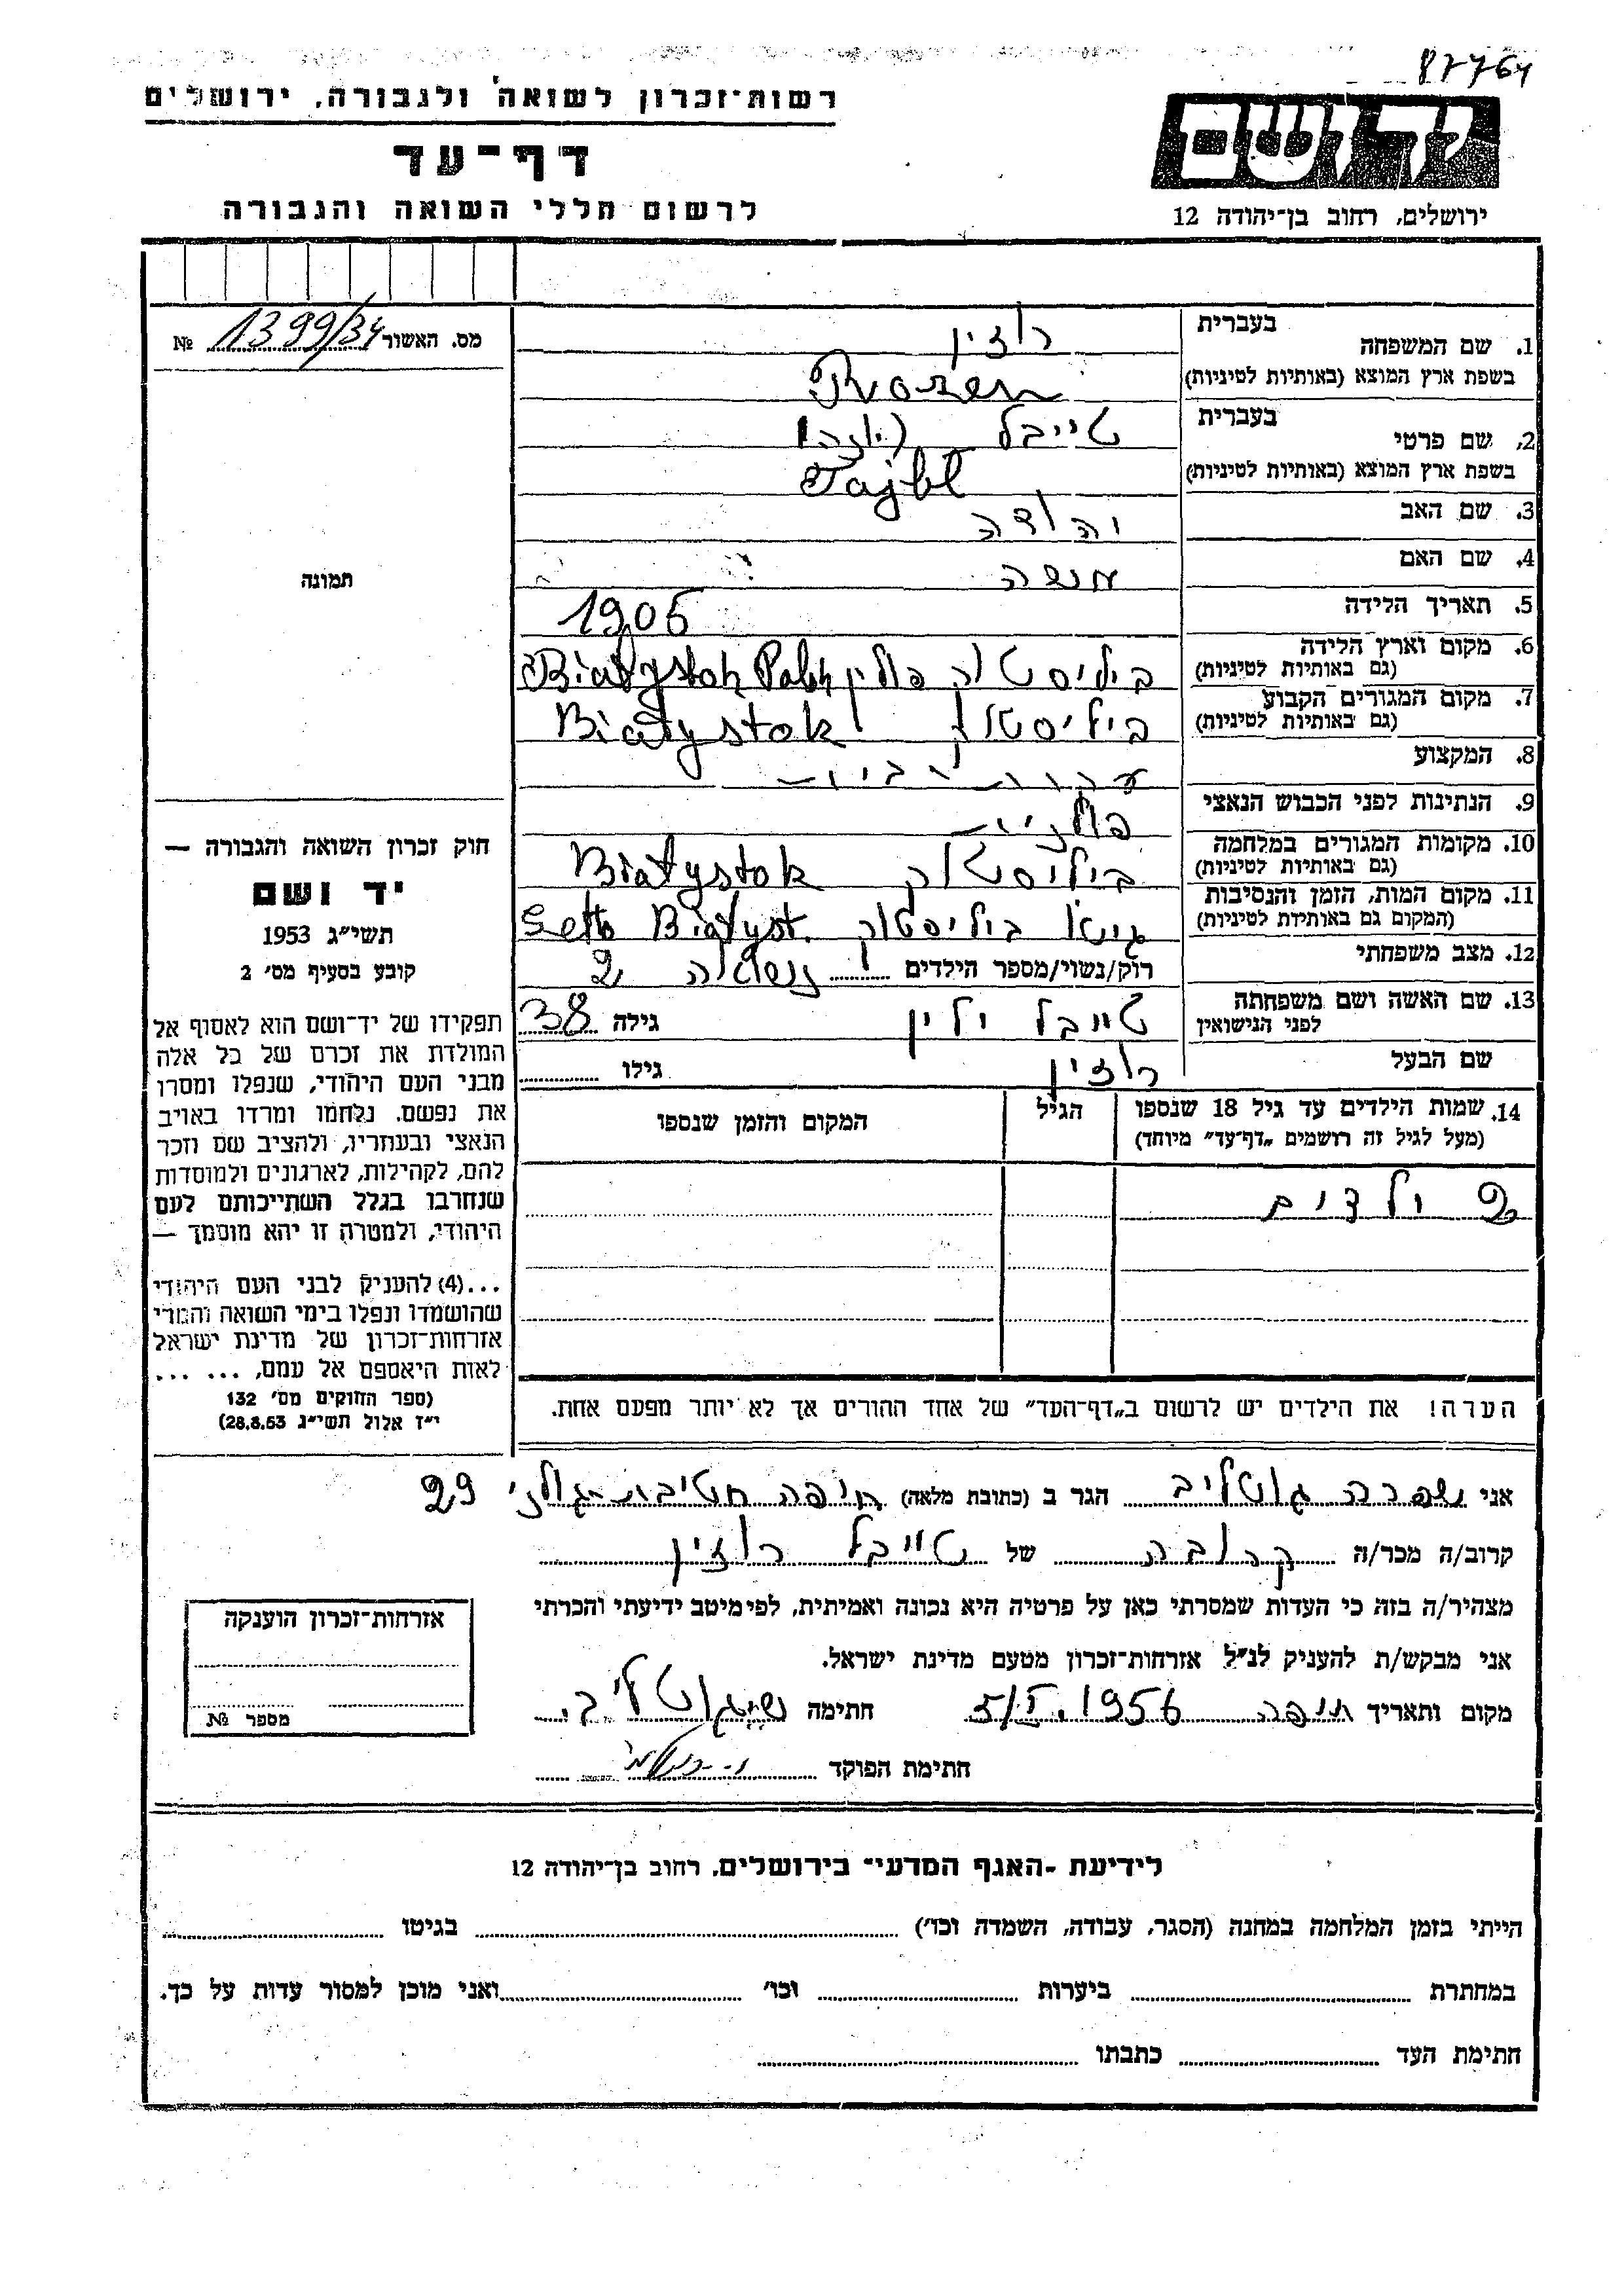 87764
רשות־זכרון לשואה ולגבורה, ירושלים
יד ושם
דף־עד
ירושלים, רחוב בן־יהודה 12
לרשום חללי השואה והגבורה
מס. האשור 1399/34 №
תמונה
1. שם המשפחה בעברית רוזין
בשפת ארץ המוצא (באותיות לטיניות) Rozen
2. שם פרטי בעברית טייבל
בשפת ארץ המוצא (באותיות לטיניות) Tajbl
3. שם האב יהודה
4. שם האם
5. תאריך הלידה 1905
6. מקום וארץ הלידה ביליסטוק פולין Białystok
(גם באותיות לטיניות)
7. מקום המגורים הקבוע ביליסטוק Białystok
(גם באותיות לטיניות)
8. המקצוע עקרת־בית
9. הנתינות לפני הכבוש הנאצי פולנית
10. מקומות המגורים במלחמה ביליסטוק Białystok
(גם באותיות לטיניות)
11. מקום המות, הזמן והנסיבות גיטו ביליסטוק Getto Białyst.
(המקום גם באותיות לטיניות)
12. מצב משפחתי רוק/נשוי/מספר הילדים נשואה 2
13. שם האשה ושם משפחתה טייבל ילין גילה 38
לפני הנישואין
שם הבעל רוזין גילו
14. שמות הילדים עד גיל 18 שנספו הגיל המקום והזמן שנספו
(מעל לגיל זה רושמים „דף־עד” מיוחד)
2 ילדים
הערה! את הילדים יש לרשום ב„דף־העד” של אחד ההורים אך לא יותר מפעם אחת.
חוק זכרון השואה והגבורה —
יד ושם
תשי״ג 1953
קובע בסעיף מס׳ 2
תפקידו של יד־ושם הוא לאסוף אל
המולדת את זכרם של כל אלה
מבני העם היהודי, שנפלו ומסרו
את נפשם. נלחמו ומרדו באויב
הנאצי ובעוזריו, ולהציב שם וזכר
להם, לקהילות, לארגונים ולמוסדות
שנחרבו בגלל השתייכותם לעם
היהודי, ולמטרה זו יהא מוסמך —
...(4) להעניק לבני העם היהודי
שהושמדו ונפלו בימי השואה והמרי
אזרחות־זכרון של מדינת ישראל
לאות היאספם אל עמם, ... ...
(ספר החוקים מס׳ 132
י״ז אלול תשי״ג 28.8.53)
אני שפרה גוטליב הגר ב (כתובת מלאה) חיפה חטיבת־גולני 29
קרוב/ה מכר/ה קרובה של טייבל רוזין
מצהיר/ה בזה כי העדות שמסרתי כאן על פרטיה היא נכונה ואמיתית, לפי מיטב ידיעתי והכרתי
אני מבקש/ת להעניק לנ״ל אזרחות־זכרון מטעם מדינת ישראל.
מקום ותאריך חיפה 5/I.1956 חתימה ש. גוטליב.
חתימת הפוקד
אזרחות־זכרון הוענקה
מספר №
לידיעת -האגף המדעי־ בירושלים, רחוב בן־יהודה 12
הייתי בזמן המלחמה במחנה (הסגר, עבודה, השמדה וכו׳) בגיטו
במחתרת ביערות וכו׳ ואני מוכן למסור עדות על כך.
חתימת העד כתבתו